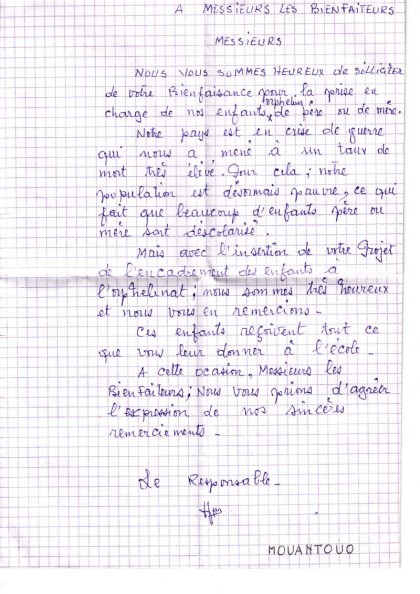 A MESSIEURS LES BIENFAITEURS
MESSIEURS
NOUS VOUS SOMMES HEUREUX de SOLLICITER
de votre Bienfaisance pour la prise en
orphelins
charge de nos enfants x de père ou de mère.
Notre pays est en crise de guerre
qui nous a mené à un taux de
mort très élevé. Pour cela; notre
population est désormais pauvre, ce qui
fait que beaucoup d'enfants père ou
mère sont déscolarisé.
Mais avec l'insertion de votre Projet
de l'encadrement des enfants à
l'orphelinat; nous sommes très heureux
et nous vous en remercions-
Ces enfants reçoivent tout ce
que vous leur donner à l'école-
A cette ocasion, Messieurs les
Bienfaiteurs; Nous vous prions d'agréer
l'expression de nos sincères
remerciements-
Le Responsable-
MOUANTOUO